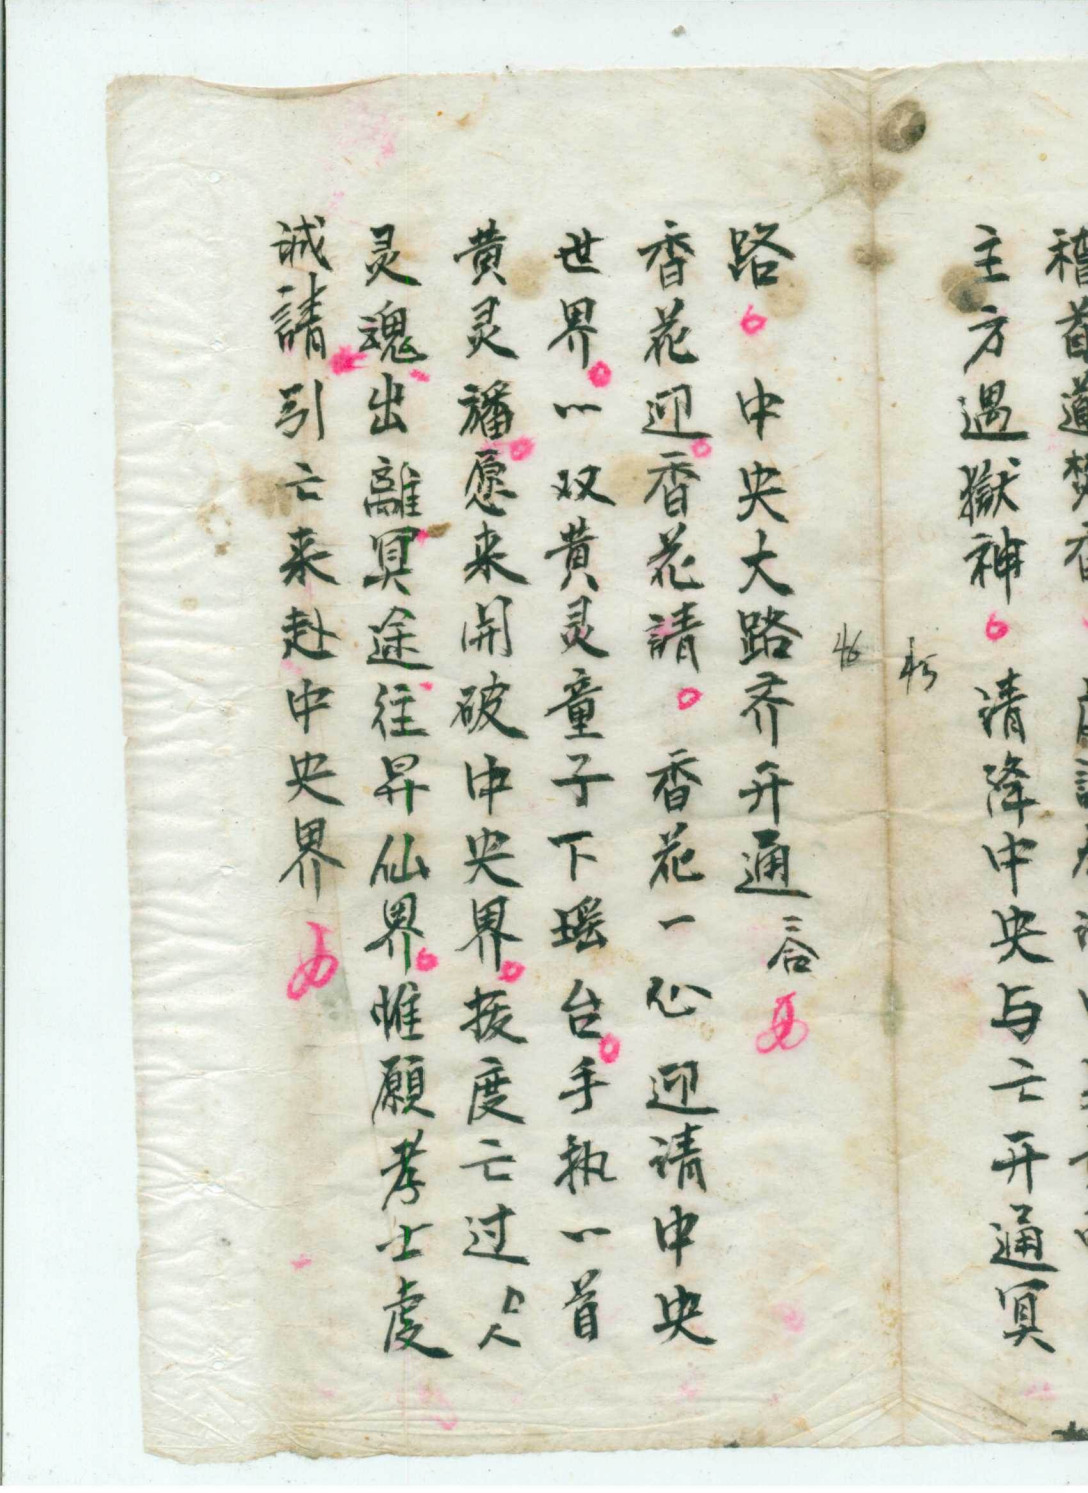 稽首道焚香
主方遇獄神清降中央与亡开通冥
路中央大路齐开通二合
香花迎香花請香花一心迎请中央
世界一双黄灵童子下瑶台手执一首
黄灵旛愿来開破中央界拔度亡过人
灵魂出離冥途往昇仙界惟願孝士虔
诚請引亡来赴中央界